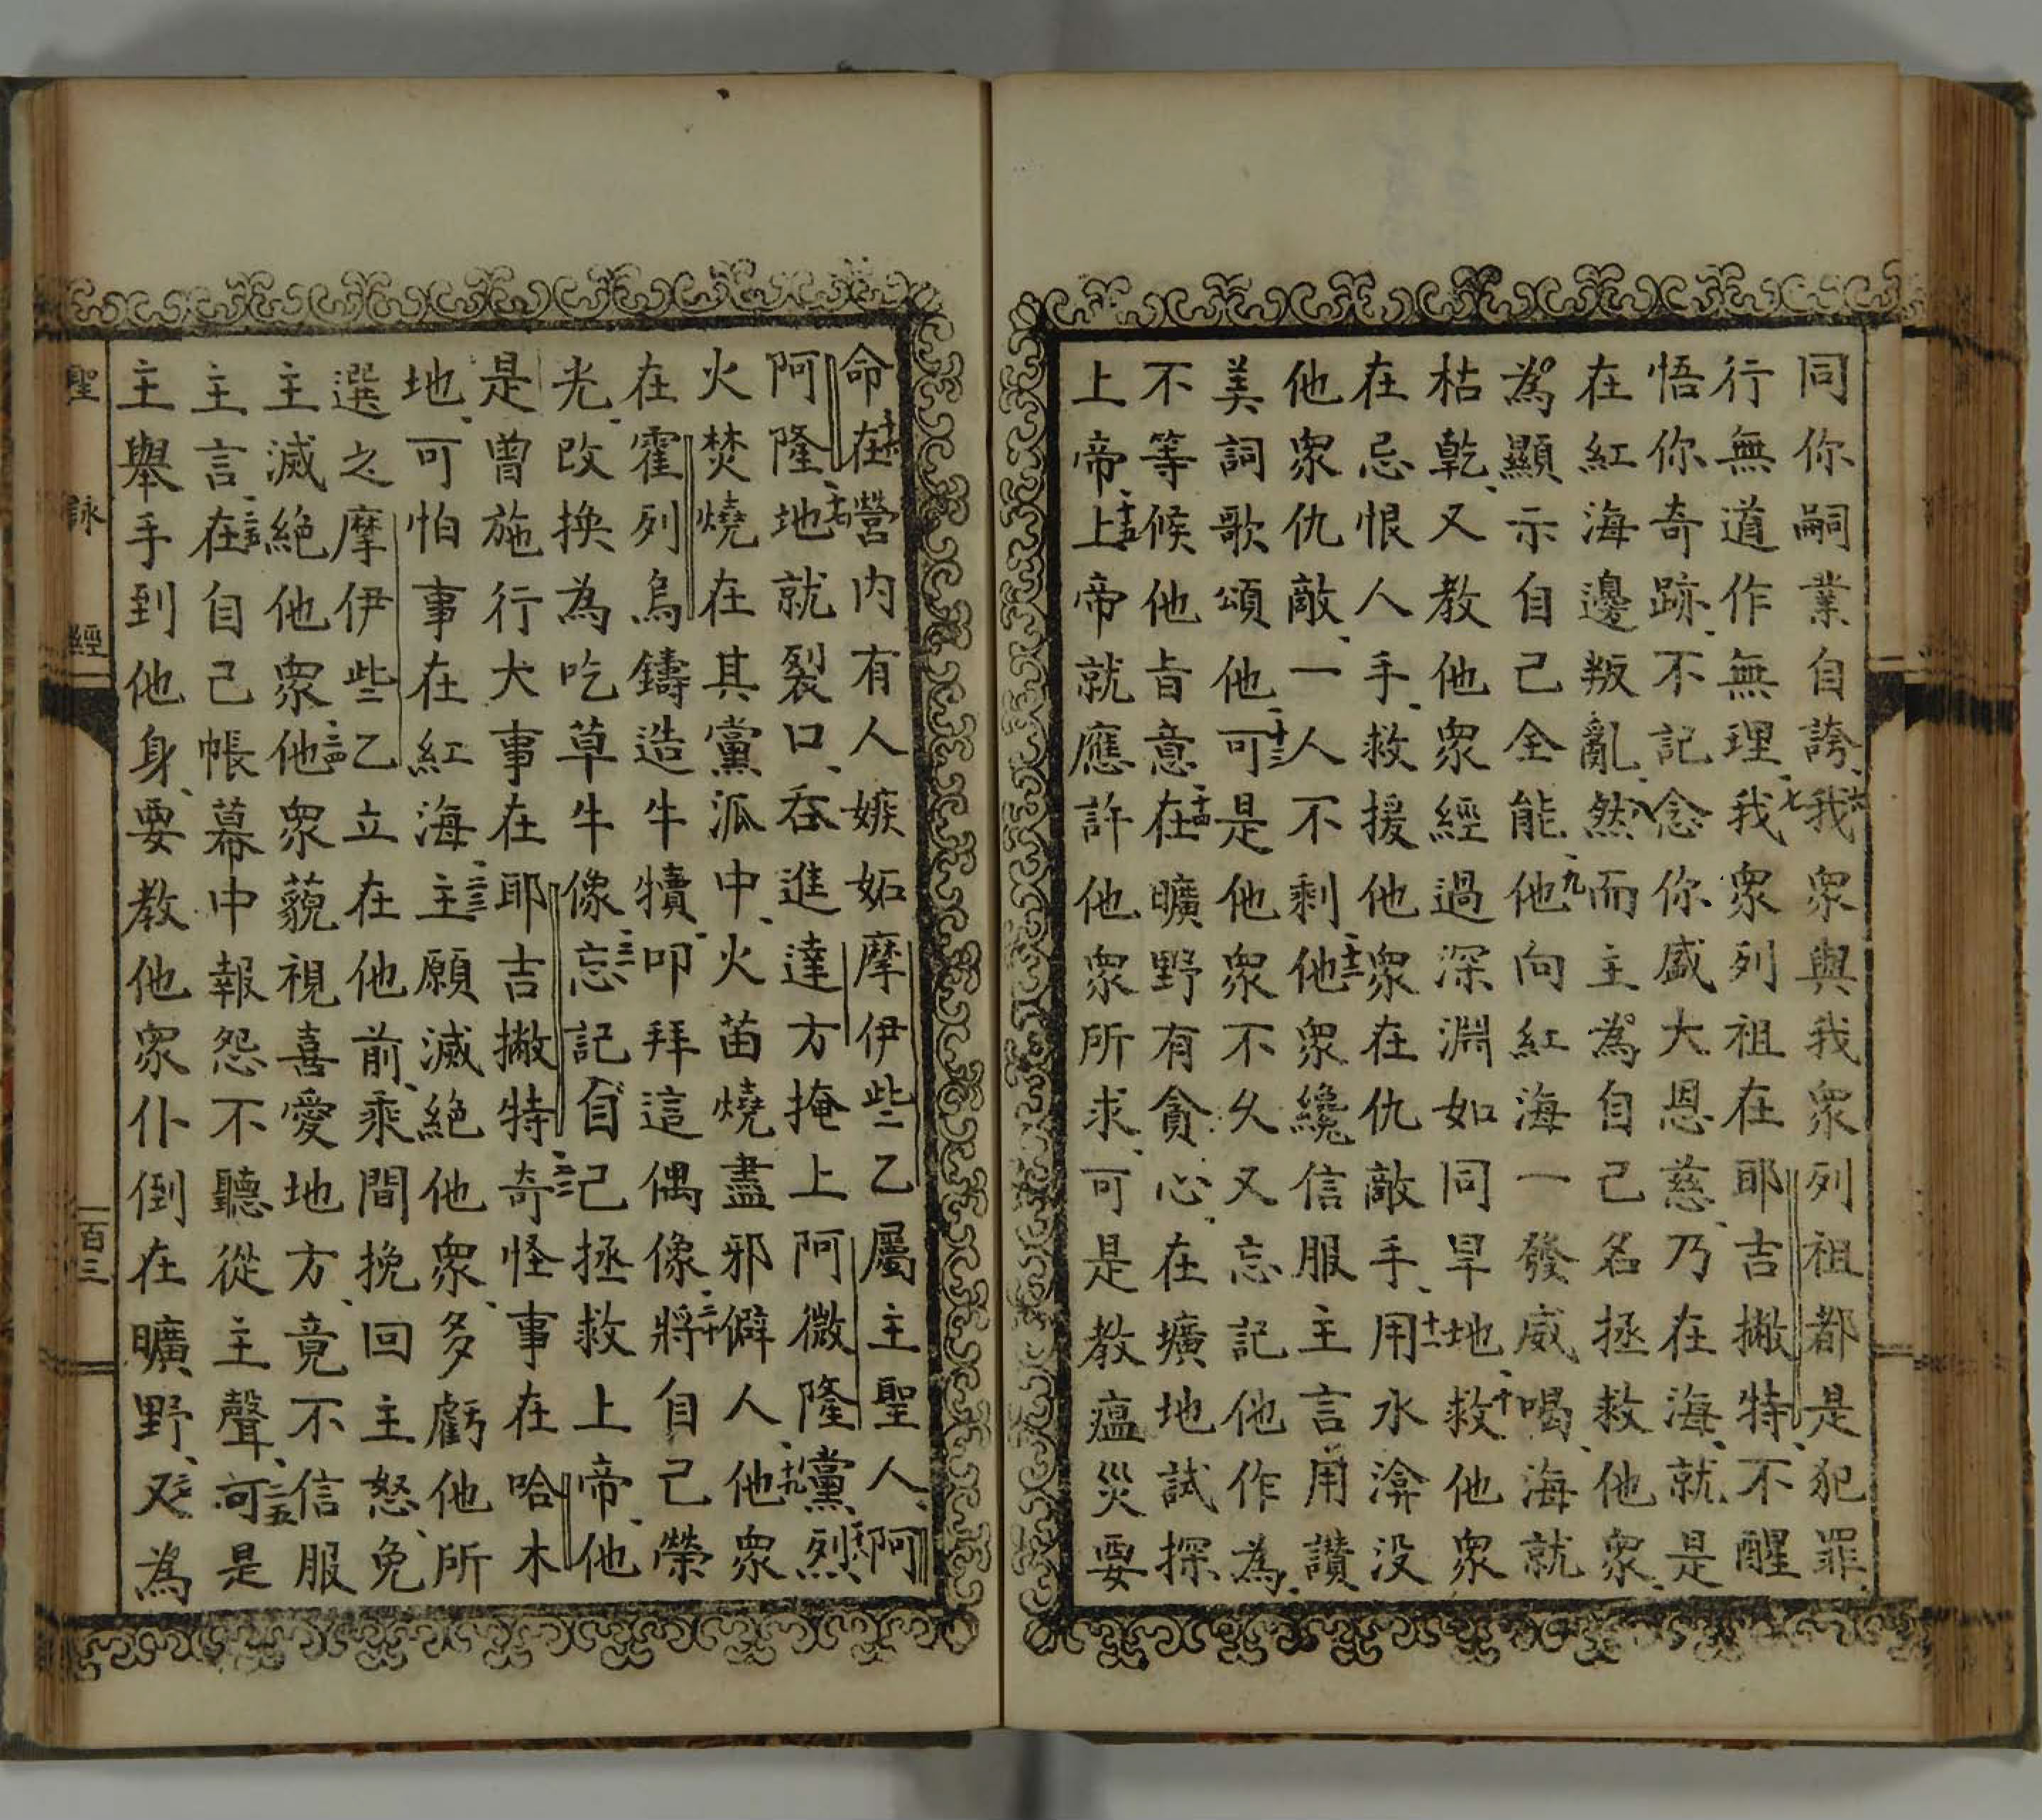 同你嗣業自誇、六我眾與我眾列祖都是犯罪、
行無道作無理、七我眾列祖在耶吉撇特、不醒
悟你奇跡、不記念你盛大恩慈、乃在海、就是
在紅海邊叛亂、八然而主為自己名拯救他眾、
為顯示自己全能、九他向紅海一發威喝、海就
枯乾、又教他眾經過深淵如同旱地、十救他眾
在忌恨人手、救援他眾在仇敵手、十一用水渰没
他眾仇敵、一人不剩、十二他眾纔信服主言、用讚
美詞歌頌他、十三可是他眾不久又忘記他作為、
不等候他旨意、十四在曠野有貪心、在壙地試探
上帝、十五上帝就應許他眾所求、可是教瘟災要
命、十六在營内有人嫉妬摩伊些乙屬主聖人、阿
阿隆、十七地就裂口、吞進達方掩上阿微隆黨、十八烈
火焚燒在其黨派中、火苗燒盡邪僻人、十九他眾
在霍列烏鑄造牛犢、叩拜這偶像、二十將自己榮
光、改换為吃草牛像、二一忘記自己拯救上帝、他
是曾施行大事在耶吉撇特、二二奇怪事在哈木
地、可怕事在紅海、二三主願滅絕他眾、多虧他所
選之摩伊些乙立在他前、乘間挽回主怒、免
主滅絕他眾、二四他眾藐視喜愛地方、竟不信服
主言、二五在自己帳幕中報怨不聽從主聲、二六可是
主舉手到他身、要教他眾仆倒在曠野、二七又為
聖詠經
一百三